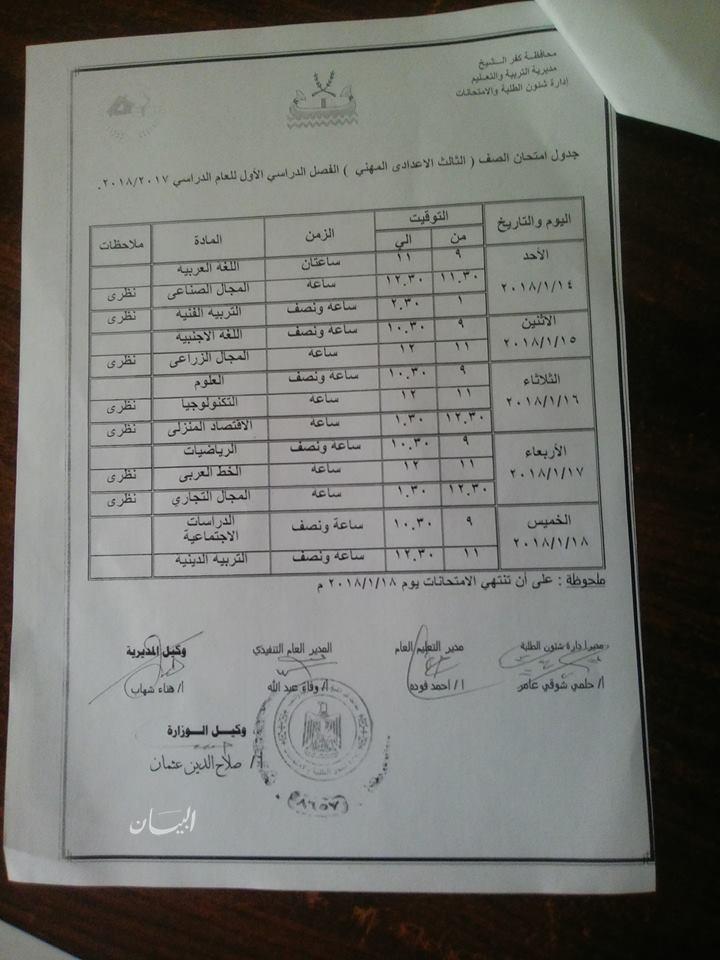 محافظة كفر الشيخ
مديرية التربية والتعليم
إدارة شئون الطلبة والامتحانات
جدول امتحان الصف ( الثالث الاعدادى المهني ) الفصل الدراسي الأول للعام الدراسي ٢٠١٨/٢٠١٧.
اليوم والتاريخ التوقيت الزمن المادة ملاحظات
من الي
الأحد ٢٠١٨/١/١٤
٩ ١١ ساعتان اللغه العربيه
١١.٣٠ ١٢.٣٠ ساعه المجال الصناعى نظرى
١ ٢.٣٠ ساعه ونصف التربيه الفنيه نظرى
الاثنين ٢٠١٨/١/١٥
٩ ١٠.٣٠ ساعه ونصف اللغه الاجنبيه
١١ ١٢ ساعه المجال الزراعى نظرى
الثلاثاء ٢٠١٨/١/١٦
٩ ١٠.٣٠ ساعه ونصف العلوم
١١ ١٢ ساعه التكنولوجيا نظرى
١٢.٣٠ ١.٣٠ ساعه الاقتصاد المنزلى نظرى
الأربعاء ٢٠١٨/١/١٧
٩ ١٠.٣٠ ساعه ونصف الرياضيات
١١ ١٢ ساعه الخط العربى نظرى
١٢.٣٠ ١.٣٠ ساعه المجال التجاري نظرى
الخميس ٢٠١٨/١/١٨
٩ ١٠.٣٠ ساعة ونصف الدراسات الاجتماعية
١١ ١٢.٣٠ ساعه ونصف التربيه الدينيه
ملحوظة : على أن تنتهي الامتحانات يوم ٢٠١٨/١/١٨ م
مدير ادارة شئون الطلبة مدير التعليم العام المدير العام التنفيذي وكيل المديرية
أ/ حلمي شوقي عامر ا / احمد فوده أ/ وفاء عبد الله أ/ هناء شهاب
وكيل الوزارة
أ/ صلاح الدين عثمان
البيان